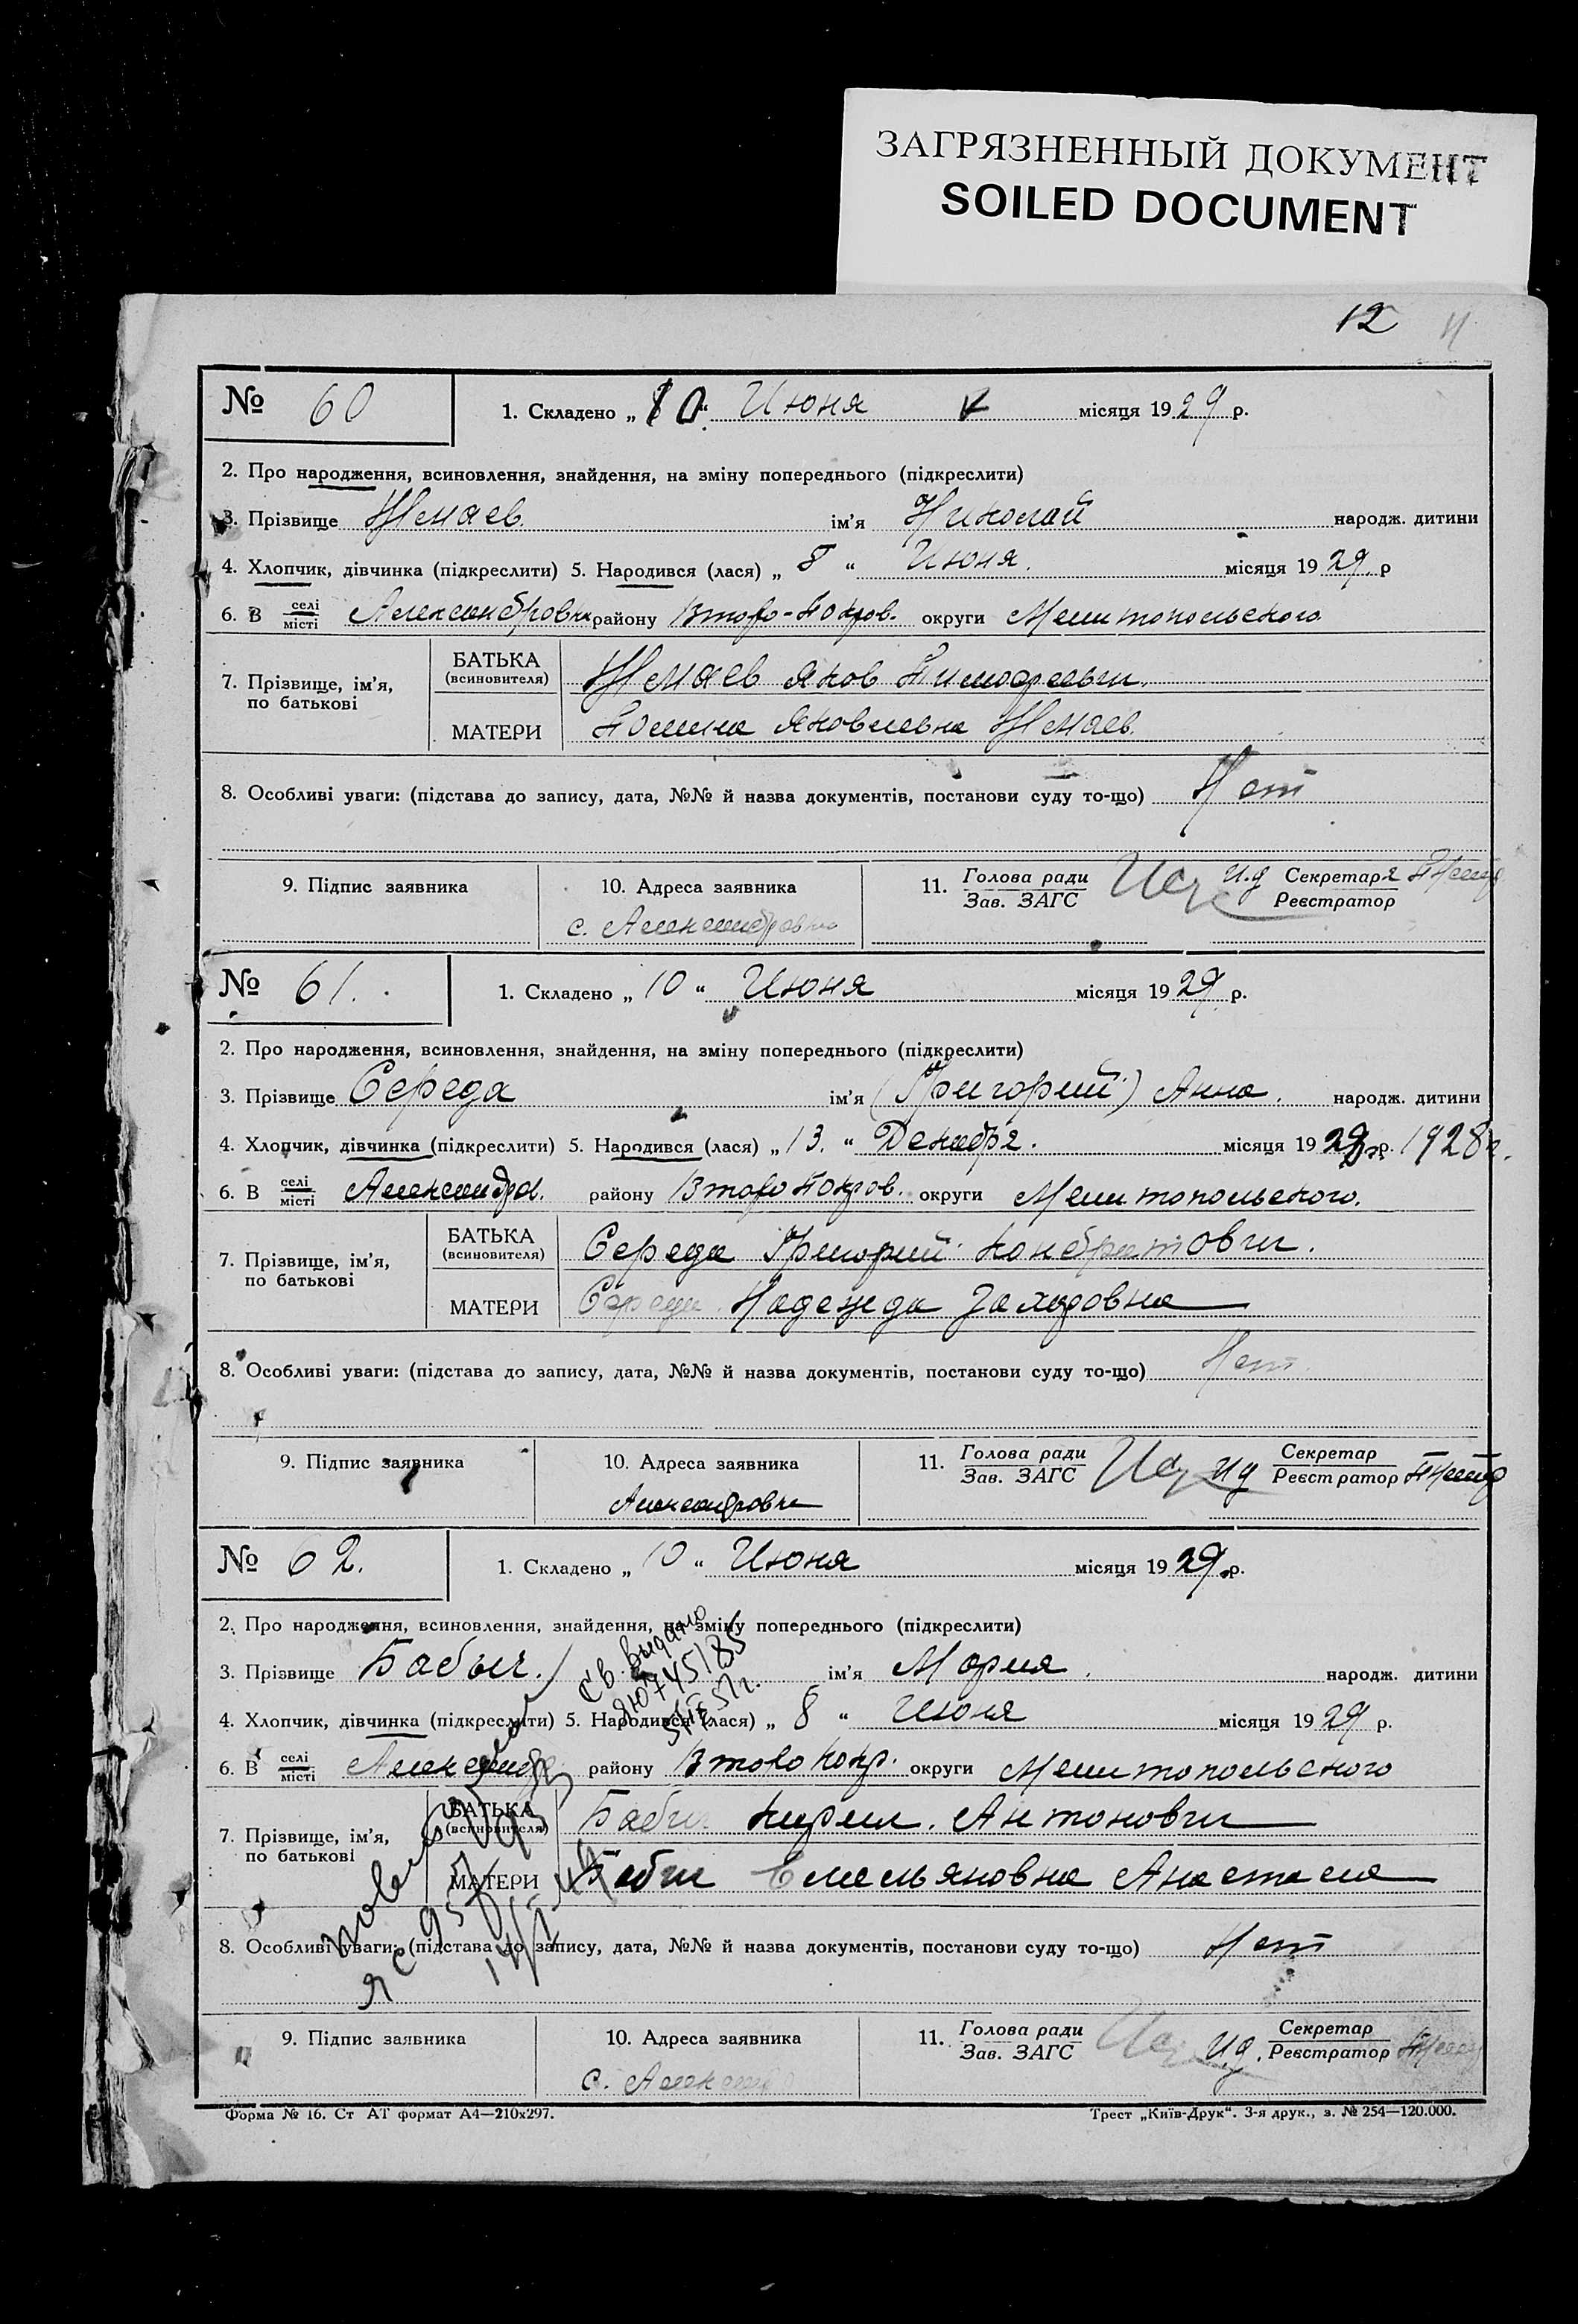 ЗАГРЯЗНЕННЫЙ ДОКУМЕНТ
SOILED DOCUMENT
12
№ 60 1. Складено „10“ Июня місяця 1929 р.
2. Про народження, всиновлення, знайдення, на зміну попереднього (підкреслити)
3. Прізвище ім'я Николай народж. дитини
4. Хлопчик, дівчинка (підкреслити) 5. Народився (лася) „8“ Июня. місяця 1929. р
6. В селі місті Александровка району Второ-Покров. округи Мелитопольского
7. Прізвище, ім'я, по батькові
БАТЬКА (всиновителя) Яков Тимофеевич.
МАТЕРИ Яковлевна
8. Особливі уваги: (підстава до запису, дата, №№ й назва документів, постанови суду то-що) Нет
9. Підпис заявника 10. Адреса заявника 11. Голова ради Зав. ЗАГС И.д Секретаря Реєстратор
с. Александровка
№ 61. 1. Складено „10“ Июня місяця 1929 р.
2. Про народження, всиновлення, знайдення, на зміну попереднього (підкреслити)
3. Прізвище Середа ім'я (Григорий) Анна. народж. дитини
4. Хлопчик, дівчинка (підкреслити) 5. Народився (лася) „13.“ Декабря. місяця 1928 р. 1928 г.
6. В селі місті Александров. району Второ Покров. округи Мелитопольского.
7. Прізвище, ім'я, по батькові
БАТЬКА (всиновителя) Середа Григорий Кондратович.
МАТЕРИ Середа Надежда Захаровна
8. Особливі уваги: (підстава до запису, дата, №№ й назва документів, постанови суду то-що) Нет.
9. Підпис заявника 10. Адреса заявника 11. Голова ради Зав. ЗАГС ИД Секретар Реєстратор
Александровка
№ 62. 1. Складено „10“ Июня місяця 1929 р.
2. Про народження, всиновлення, знайдення, на зміну попереднього (підкреслити)
Св. выдано
3. Прізвище Бабич. ім'я Мария. народж. дитини
4. Хлопчик, дівчинка (підкреслити) 5. Народився (лася) „8“ Июня місяця 1929 р.
6. В селі місті Александр району Второ Покр. округи Мелитопольского
7. Прізвище, ім'я, по батькові
БАТЬКА (всиновителя) Бабич Кирил. Антонович
МАТЕРИ Бабич Емельяновна Анастасия
8. Особливі уваги: (підстава до запису, дата, №№ й назва документів, постанови суду то-що) Нет
9. Підпис заявника 10. Адреса заявника 11. Голова ради Зав. ЗАГС И.д. Секретар Реєстратор
с. Александ
Форма № 16. Ст АТ формат А4—210х297. Трест „Київ-Друк“. 3-я друк., з. № 254—120.000.